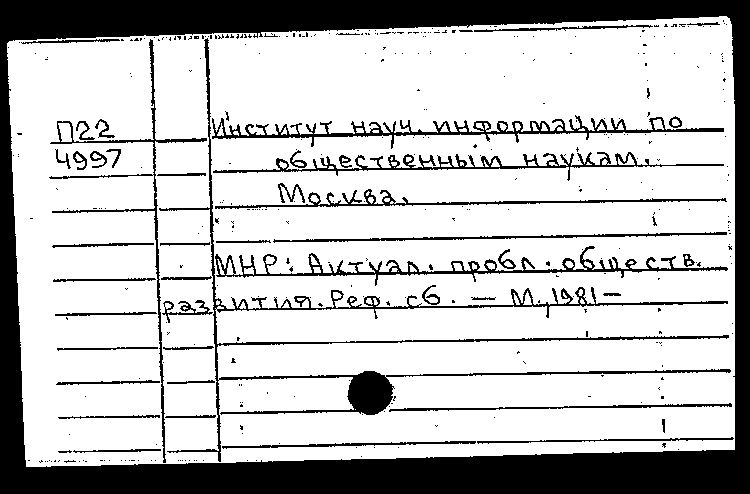 П22
4997
Институт науч. информации по
общественным наукам.
Москва.
МНР: Актуал. пробл. обществ.
развития. Реф. сб. — М., 1981—